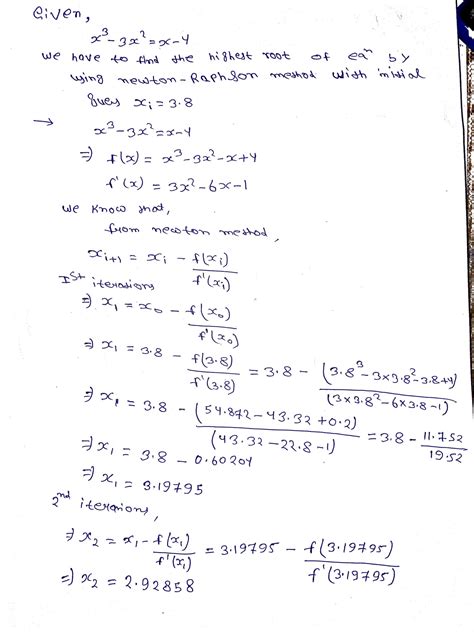 Given,
x³-3x²=x-4
we have to find the highest root of eqⁿ by
using newton-Raphson method with initial
gues xᵢ=3.8
→ x³-3x²=x-4
⇒ f(x) = x³-3x²-x+4
f'(x) = 3x²-6x-1
we know that,
from newton method,
xᵢ₊₁ = xᵢ - f(xᵢ)/f'(xᵢ)
Iˢᵗ iterations
⇒ x₁ = x₀ - f(x₀)/f'(x₀)
⇒ x₁ = 3.8 - f(3.8)/f'(3.8) = 3.8 - (3.8³-3×3.8²-3.8+4)/(3×3.8²-6×3.8-1)
⇒ x₁ = 3.8 - (54.872-43.32+0.2)/(43.32-22.8-1) = 3.8 - 11.752/19.52
⇒ x₁ = 3.8 - 0.60204
⇒ x₁ = 3.19795
2ⁿᵈ iterations,
⇒ x₂ = x₁ - f(x₁)/f'(x₁) = 3.19795 - f(3.19795)/f'(3.19795)
⇒ x₂ = 2.92858